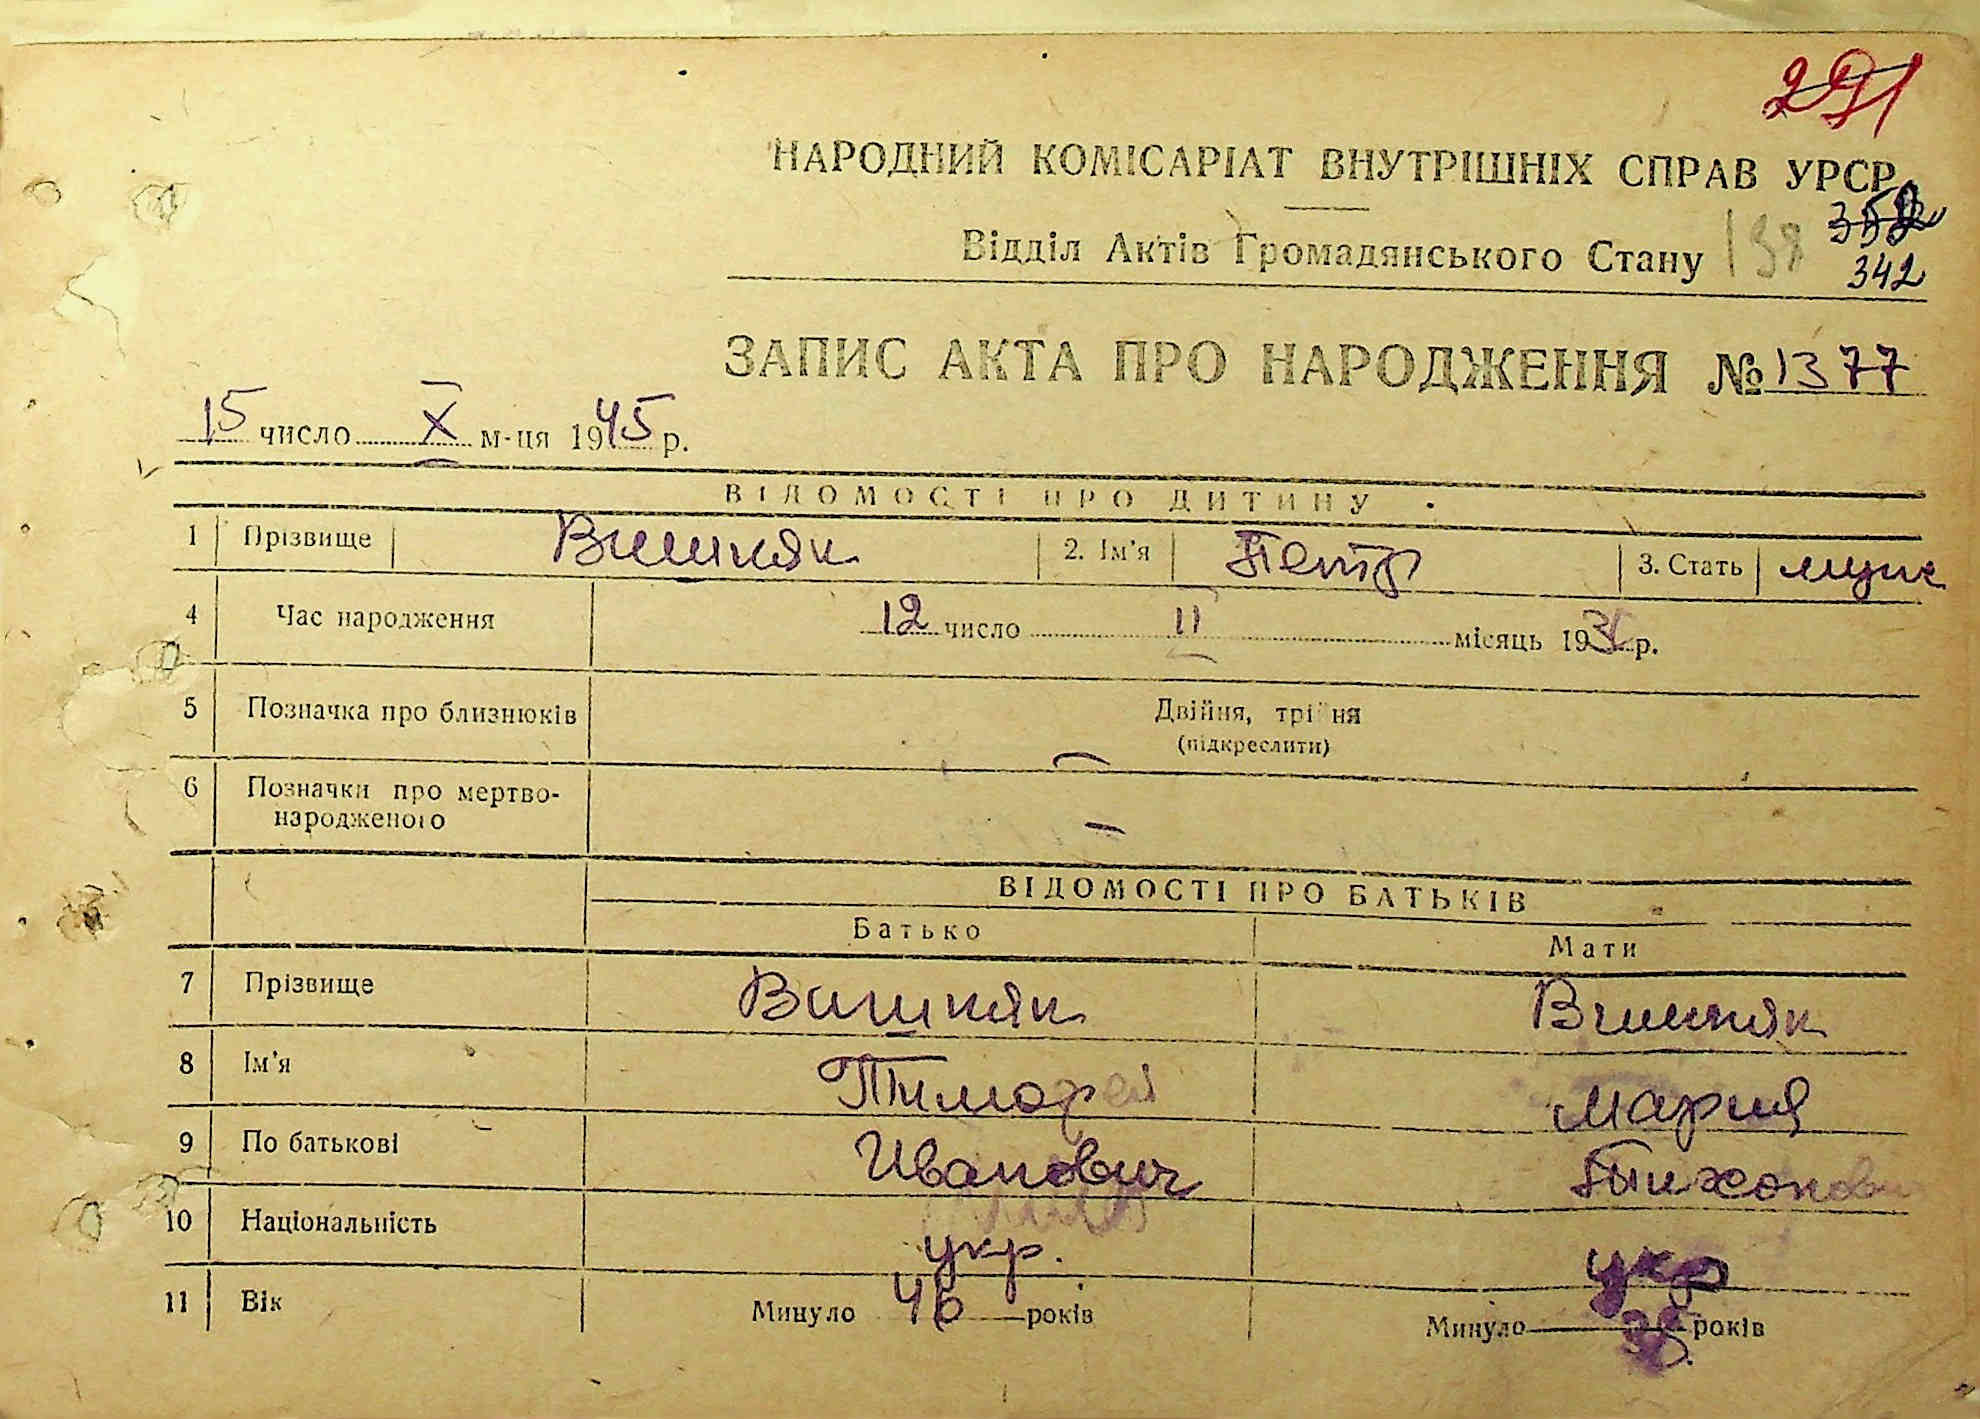 291
НАРОДНИЙ КОМІСАРІАТ ВНУТРІШНІХ СПРАВ УРСР
Відділ Актів Громадянського Стану 138
342
ЗАПИС АКТА ПРО НАРОДЖЕННЯ № 1377
15 число X м-ця 1945 р.
ВІДОМОСТІ ПРО ДИТИНУ
1 Прізвище Вишняк 2. Ім'я Петр 3. Стать муж
4 Час народження 12 число II місяць 19 р.
5 Позначка про близнюків Двійня, трійня
(підкреслити)
6 Позначки про мертво-
народженого –
ВІДОМОСТІ ПРО БАТЬКІВ
Батько Мати
7 Прізвище Вишняк Вишняк
8 Ім'я Тимофей Мария
9 По батькові Иванович Тихонов
10 Національність укр. укр
11 Вік Минуло 46 років Минуло років